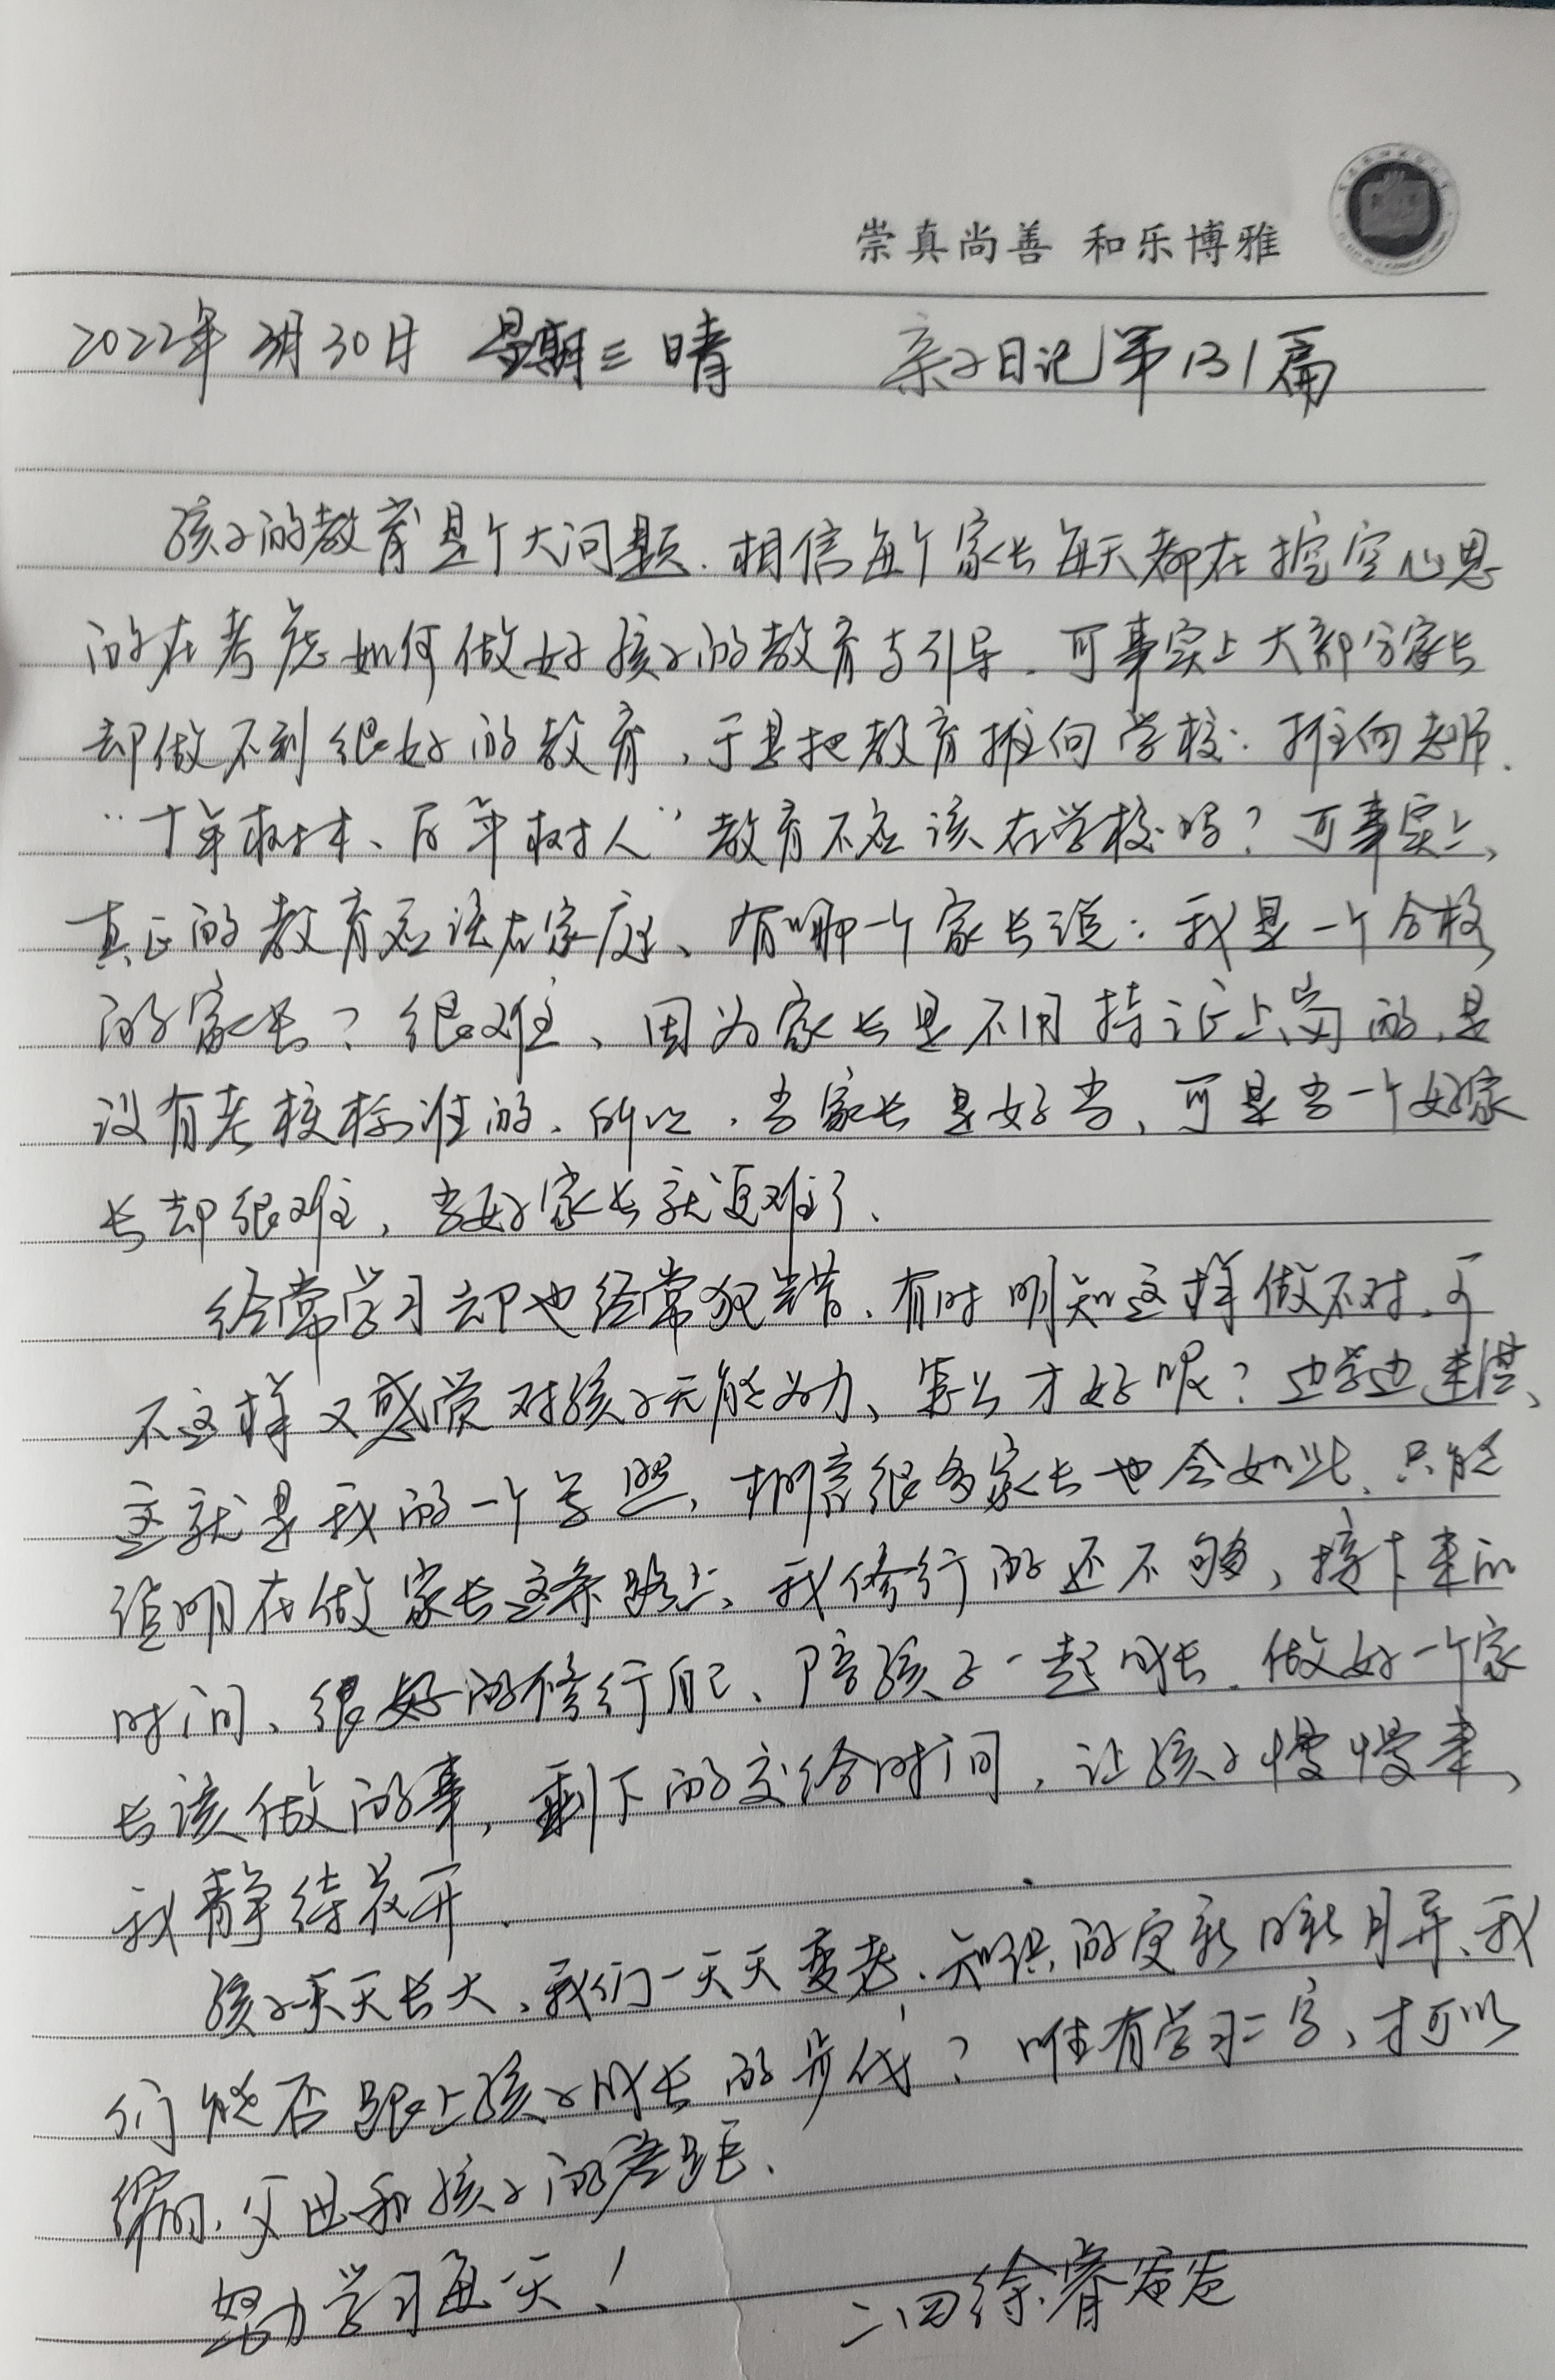 崇真尚善 和乐博雅
2022年3月30日 星期三 晴 亲子日记第131篇
孩子的教育是个大问题.相信每个家长每天都在挖空心思
的在考虑如何做好孩子的教育与引导.可事实上大部分家长
却做不到很好的教育,于是把教育推向学校.推向老师.
“十年树木、百年树人”教育不应该在学校吗?可事实上,
真正的教育应该在家庭、有哪一个家长说:我是一个合格
的家长?很难、因为家长是不用持证上岗的.是
没有考核标准的.所以.当家长是好当,可是当一个好家
长却很难,当好家长就更难了、
经常学习却也经常犯错、有时明知这样做不对.可
不这样又感觉对孩子无能为力、怎么才好呢?边学边迷茫、
这就是我的一个写照,相信很多家长也会如此.只能
证明在做家长这条路上,我修行的还不够,接下来的
时间、很好的修行自己、陪孩子一起成长.做好一个家
长该做的事,剩下的交给时间,让孩子慢慢来,
我静待花开.
孩子一天天长大,我们一天天变老.知识的更新日新月异、我
们能否跟上孩子成长的步伐?唯有学习二字,才可以
缩小父母和孩子的差距.
努力学习每一天!
二四徐睿